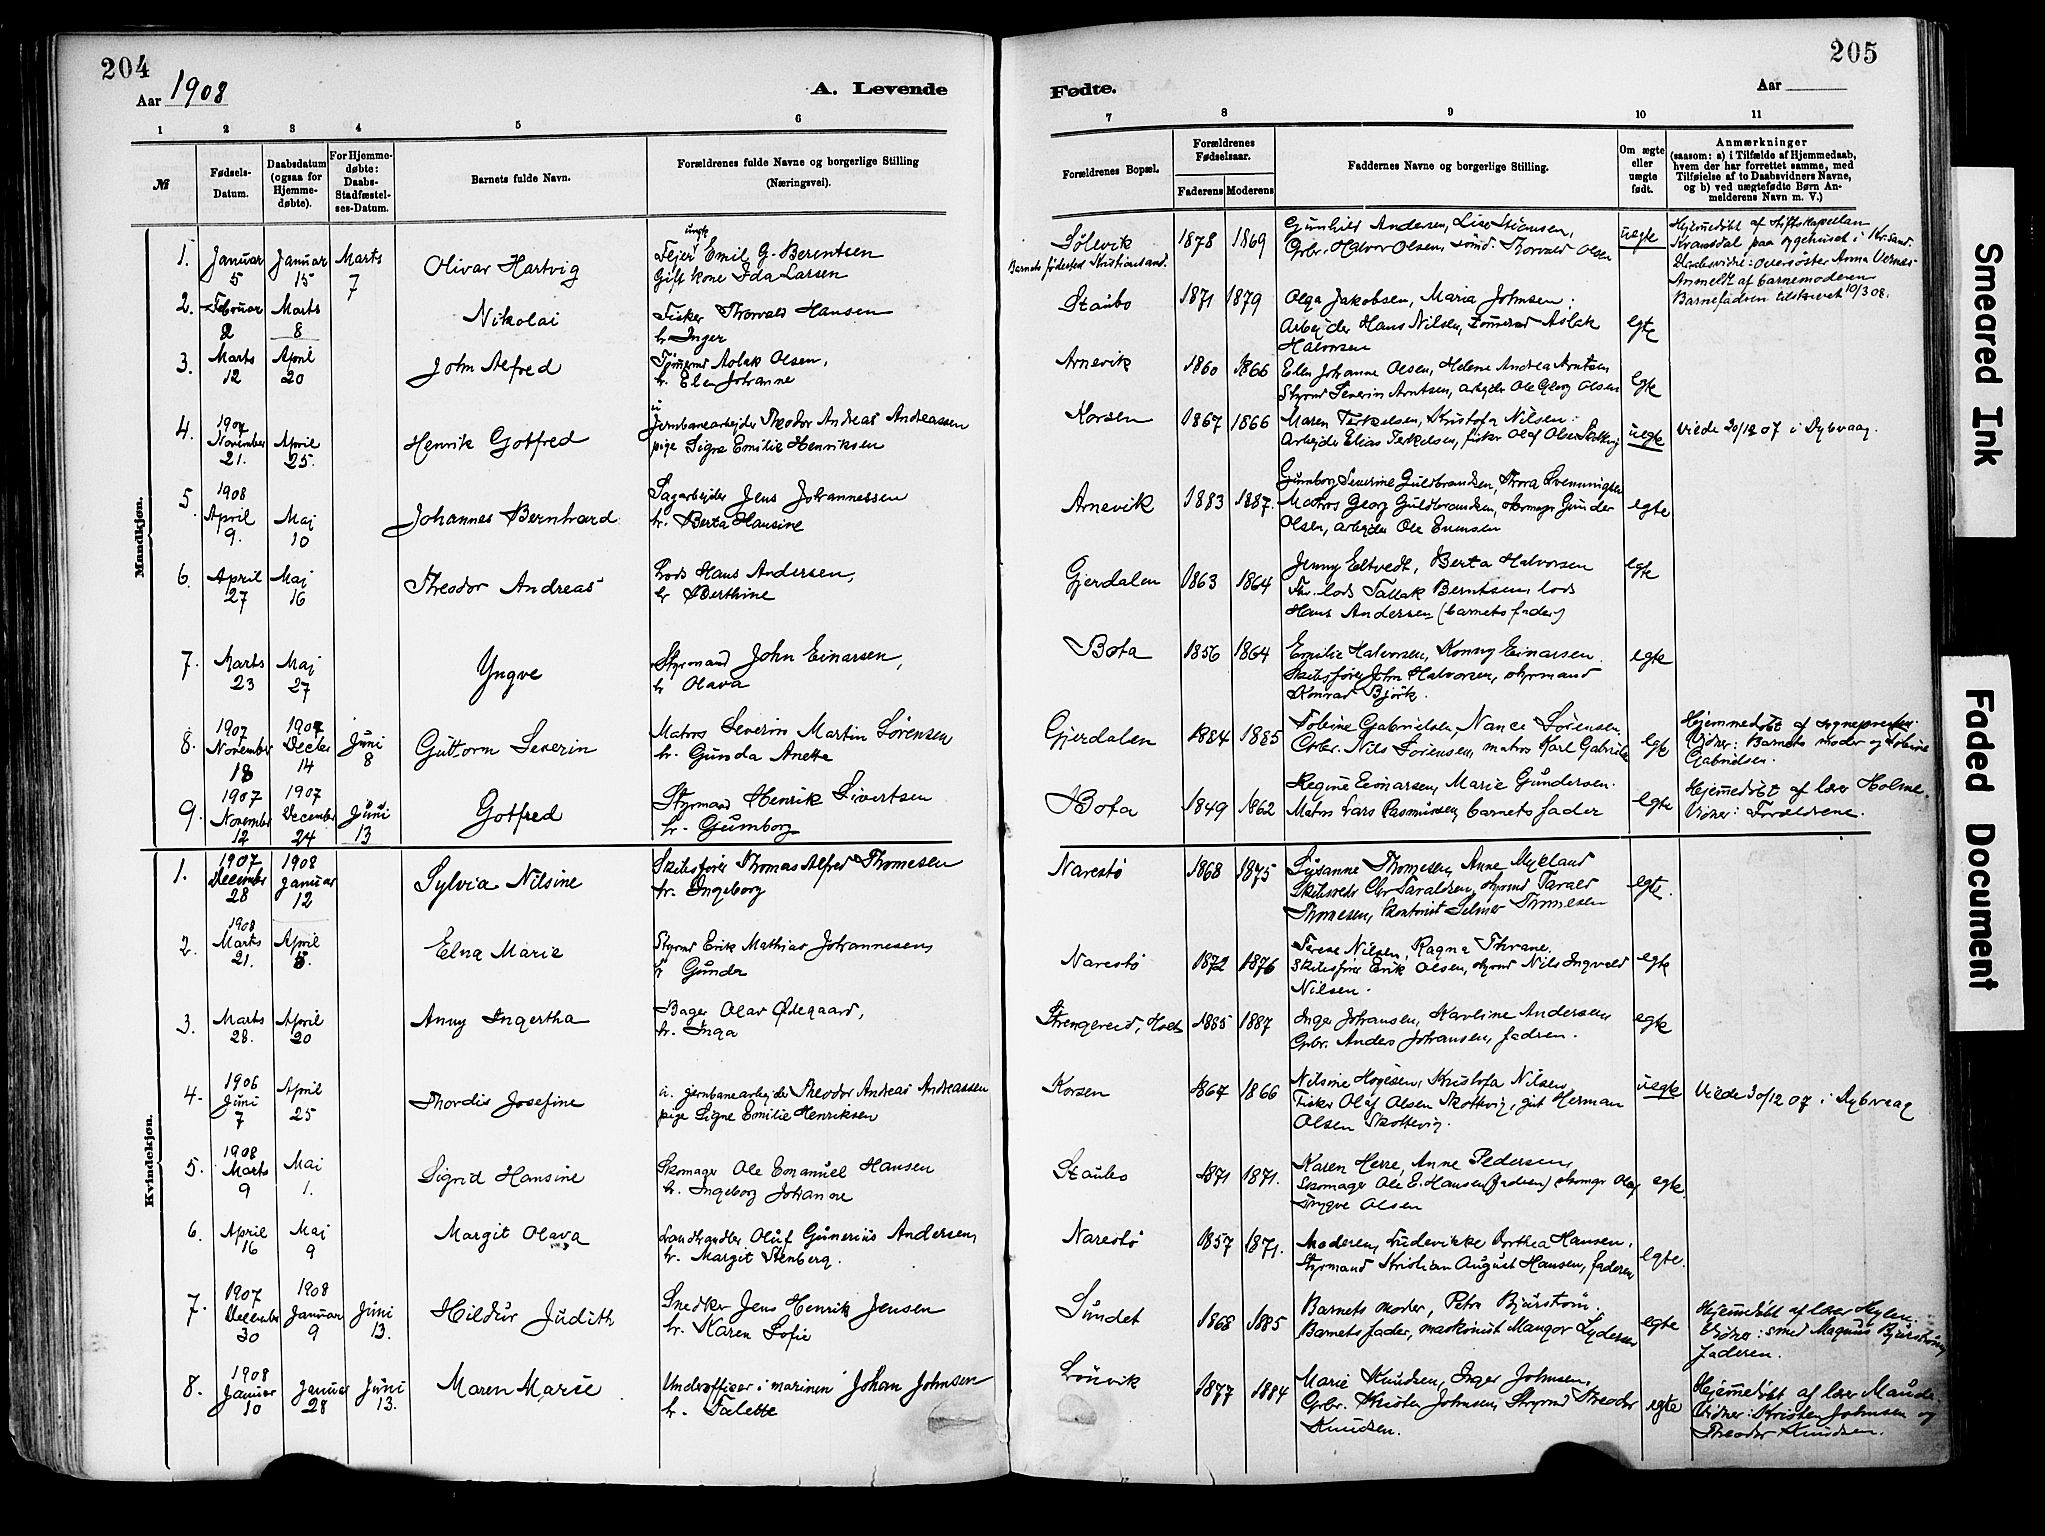 204
Aar 1908
A. Levende
1 2 3 4 5 6
№
Fødsels-
Datum.
Daabsdatum
(ogsaa for
Hjemme-
døbte).
For Hjemme-
døbte:
Daabs-
Stadfæstel-
ses-Datum.
Barnets fulde Navn.
Forældrenes fulde Navne og borgerlige Stilling
(Næringsvei).
Mandkjøn.
1. Januar 5 Januar 15 Marts 7 Olivar Hartvig
ungk
Fejer Emil G. Berentsen
Gift kone Ida Larsen
2. Februar 2 Marts 8 Nikolai
Fisker Thorvald Hansen
h. Inger
3. Marts 12 April 20 John Alfred
Tømmermd Aslak Olsen,
h. Elen Johanne
4. 1907 November 21. April 25. Henrik Gotfred
u. Jernbanearbejder Theodor Andreas Andreassen
pige Signe Emilie Henriksen
5. 1908 April 9. Maj 10 Johannes Bernhard
Sagarbejder Jens Johannessen
h. Berta Hansine
6. April 27 Maj 16 Theodor Andreas
Lods Hans Andersen,
h. Berthine
7. Marts 23 Maj 27 Yngve
Styrmand John Einarsen,
h. Olava
8. 1907 November 18 1907 Decbr 14 Juni 8 Guttorm Severin
Matros Severin Martin Sørensen
h. Gunda Anette
9. 1907 November 12 1907 December 24 Juni 13 Gotfred
Styrmand Henrik Sivertsen
h. Gumborg
Kvindekjøn.
1. 1907 December 28 1908 Januar 12 Sylvia Nilsine
Skibsfører Thomas Alfred Thomesen
h. Ingeborg
2. 1908 Marts 21. April 5. Elna Marie
Styrmd Erik Mathias Johannesen,
h. Gunda
3. Marts 28. April 20 Anny Ingertha
Bager Olav Ødegaard,
h. Inga
4. 1906 Juni 7 April 25 Thordis Josefine
u. jernbanearbejder Theodor Andreas Andreassen
pige Signe Emilie Henriksen
5. 1908 Marts 9 Mai 1. Sigrid Hansine
Skomager Ole Emanuel Hansen
h. Ingeborg Johanne
6. April 16 Maj 9 Margit Olava
Landhandler Oluf Gunerius Andersen,
h. Margit Stenberg.
7. 1907 December 30 1908 Januar 9 Juni 13. Hildur Judith
Snedker Jens Henrik Jensen
h. Karen Sofie
8. 1908 Januar 10 Januar 28 Juni 13. Maren Marie
Underofficer i marinen Johan Johnsen
h. Talette
205
Fødte.
Aar
7 8 9 10 11
Forældrenes Bopæl.
Forældrenes
Fødselsaar.
Faderens Moderens
Faddernes Navne og borgerlige Stilling.
Om ægte
eller
uægte
født.
Anmærkninger
(saasom: a) i Tilfælde af Hjemmedaab,
hvem der har forrettet samme, med
Tilføielse af to Daabsvidners Navne,
og b) ved uægtefødte Børn An-
melderens Navn m. V.)
Sølevik
Barnets fødested Kristiansand.
1878 1869
Gunhild Andersen, Lise Stiansen,
Grbr. Halvor Olsen, tømd. Thorvald Olsen
uegte
Hjemmedøbt af stiftskapellan
Kramsdal paa sygehuset i Kr.sand.
Daabsvidne: oversøster Anna Vernes
Anmeldt af barnemoderen
Barnefadren tilskrevet 10/3 08.
Staubo 1871 1879
Olga Jakobsen, Maria Johnsen:
Arbejder Hans Nilsen, tømmermd Aslak
Halvorsen
egte
Arnevik 1860 1866
Elen Johanne Olsen, Helene Andrea Arntsen
Styrmd Severin Arntsen, arbejder Ole Georg Olsen
egte
Korsen 1867 1866
Maren Terkelsen, Kristofa Nilsen:
Arbejder Elias Terkelsen, fisker Olaf Olsen Skottevig
uegte
Viede 30/12 07 i Dybvaag.
Arnevik 1883 1887.
Gumborg Severine Guldbrandsen, Thora Svenningsen
Matros Georg Guldbrandsen, skomager Gunder
Olsen, arbejder Ole Evensen
egte
Gjerdalen 1863 1864
Jenny Eltvedt, Berta Halvorsen
Fhv. lods Tallak Berntsen, lods
Hans Andersen (barnets fader)
egte
Bota 1856 1864
Emilie Halvorsen, Konny Einarsen.
Skibsfører John Halvorsen, styrmand
Konrad Bjørk.
egte
Gjerdalen 1884 1885
Tobine Gabrielsen, Nance Sørensen,
Grbr. Nils Sørensen, matros Karl Gabrielsen
egte
Hjemmedøbt af sogneprestn.
Vidner: Barnets moder og Tobine
Gabrielsen.
Bota 1849 1862
Regine Einarsen, Marie Gundersen.
Matros Lars Rasmussen, barnets fader
egte
Hjemmedøbt af lærer Holme.
Vidner: Forældrene.
Narestø 1868 1875
Susanne Thomesen, Anne Mykland
Skibsreder Chr Taraldsen, styrmd Tarald
Thomesen, kontorist Selmer Thomesen
egte.
Narestø 1872 1876
Terese Nilsen, Ragna Thrane.
Skibsfører Erik Olsen, styrmd Nils Ingvald
Nilsen.
egte
Strengereid, Holt 1885 1887
Inger Johansen, Karoline Andersen,
Grbr. Anders Johansen, fadren.
egte
Korsen 1867 1866
Nilsine Hogesen, Kristofa Nilsen,
Fisker Oluf Olsen Skottevig, gut Herman
Olsen Skottevig.
uegte
Viede 30/12 07 i Dybvaag
Staubo 1871 1871.
Karen Herre, Anne Pedersen,
Skomager Ole E. Hansen (fadren) skomgr Olaf
Trygve Olsen
egte.
Narestø 1857 1871.
Moderen, Ludevikke Dorthea Hansen,
Styrmand Kristian August Hansen, faderen
egte.
Sundet 1868 1885
Barnets moder, Petra Bjurstrøm.
Barnets fader, maskinist Mangor Lydersen
egte
Hjemmedøbt af lærer Hylen.
Vidner: smed Magnus Bjurstrøm,
faderen.
Lønvik 1877 1884
Marie Knudsen, Inger Johnsen,
Grbr. Kristen Johnsen, Styrmd Theodor
Knudsen.
egte
Hjemmedøbt af lærer Maude.
Vidner: Kristen Johnsen og
Theodor Knudsen.
Smeared Ink
Faded Document